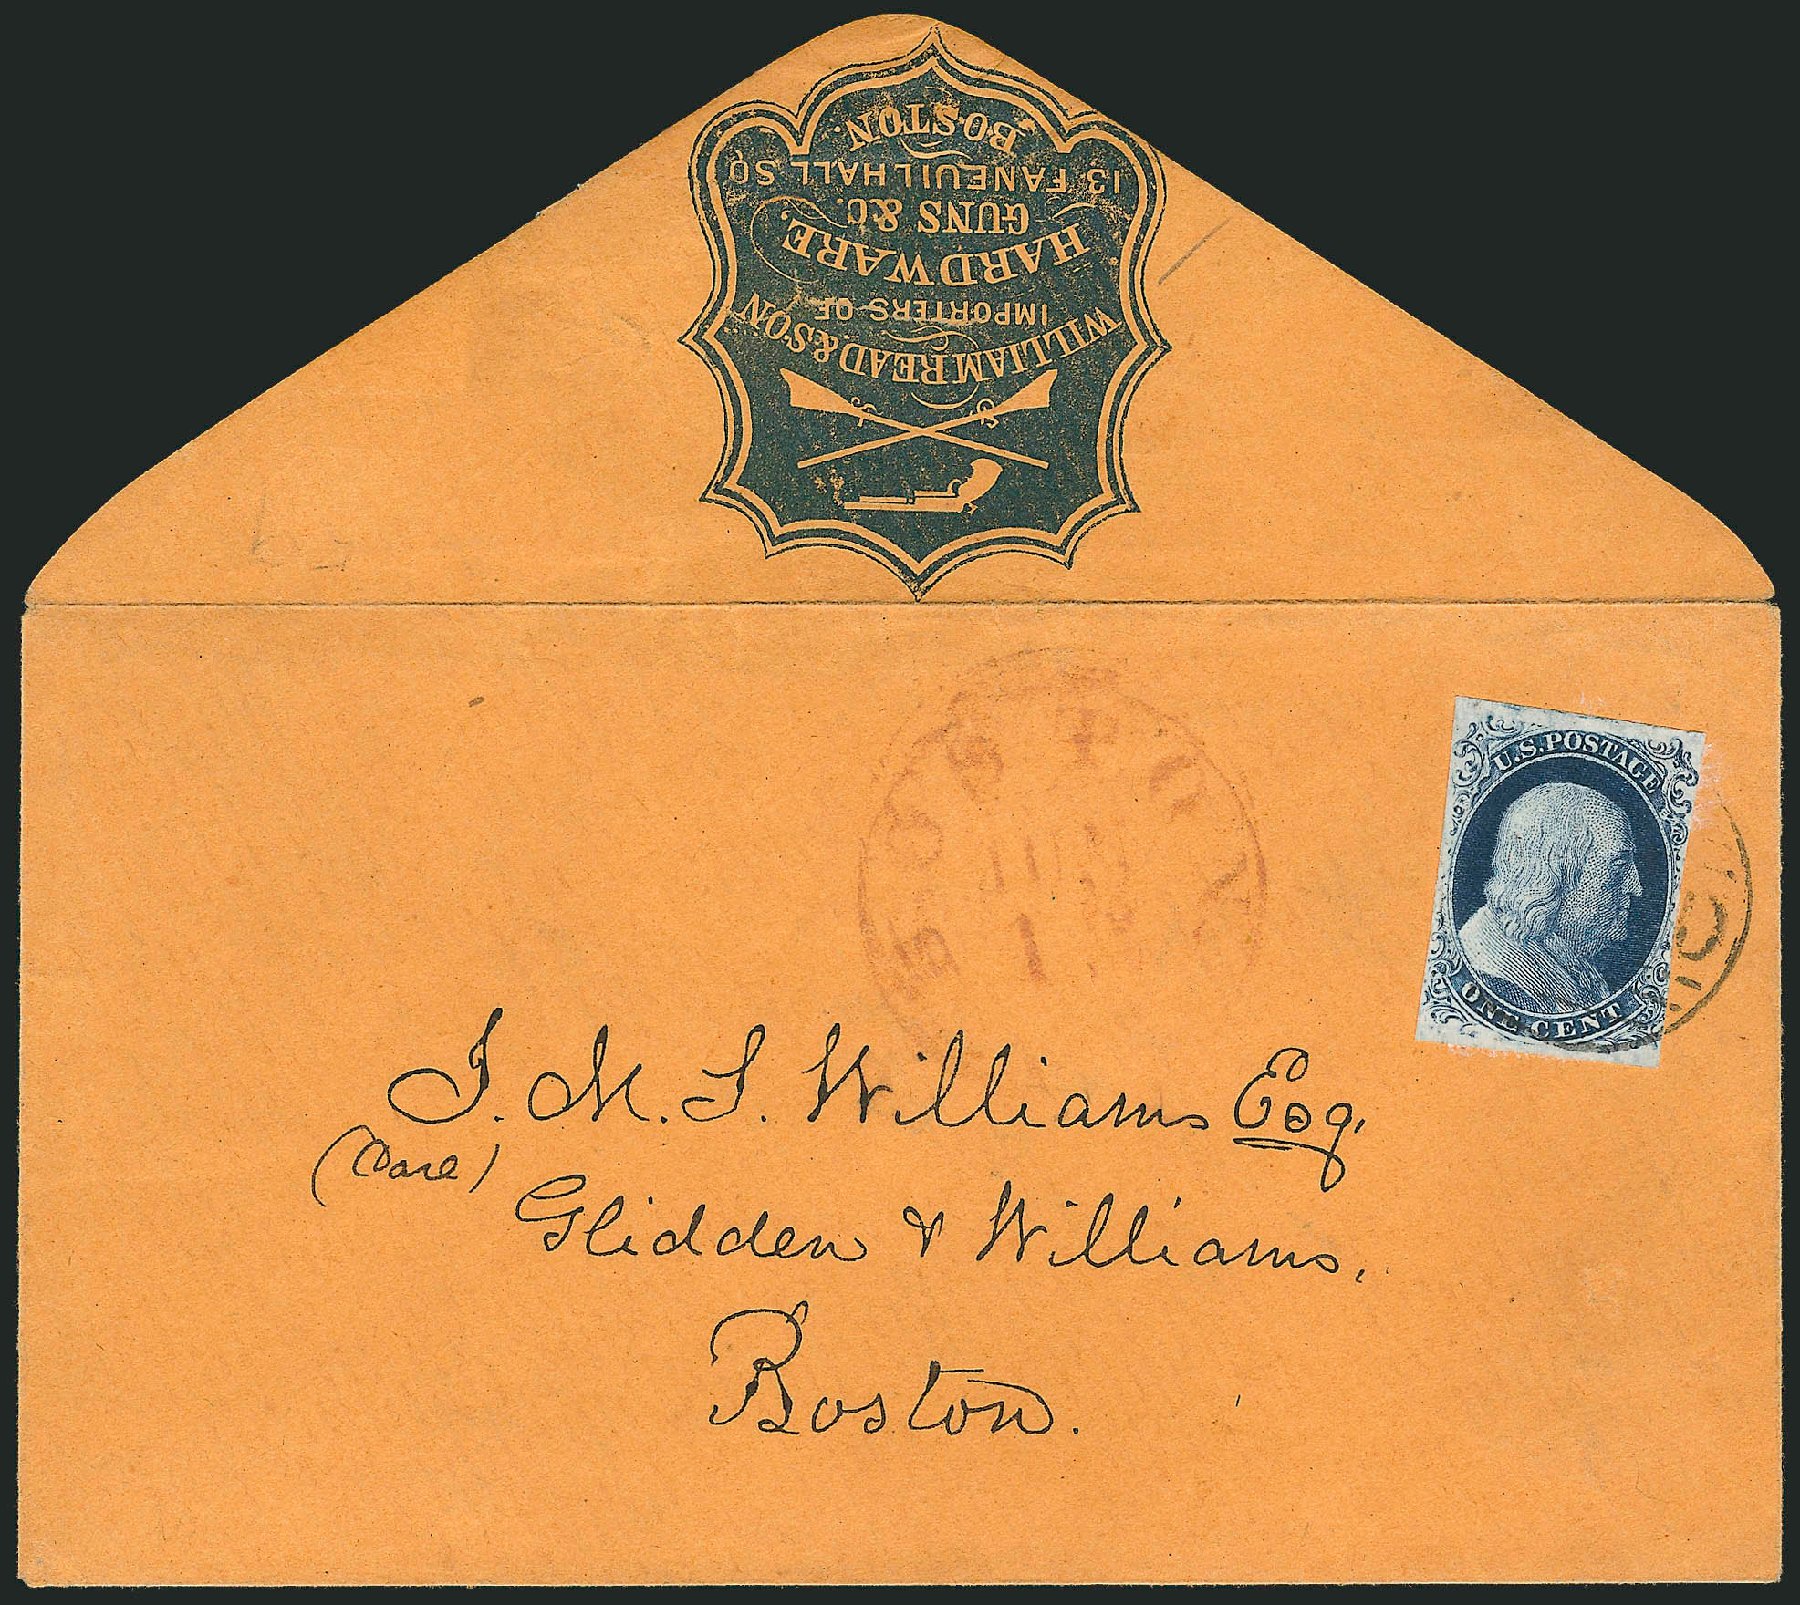 WILLIAM READ & SON
IMPORTERS OF
HARDWARE,
GUNS &C.
13 FANEUIL HALL SQ
BOSTON.
BOSTON
JUL
U.S. POSTAGE
ONE CENT
J. M. S. Williams Esq.
(Care)
Glidden & Williams,
Boston.